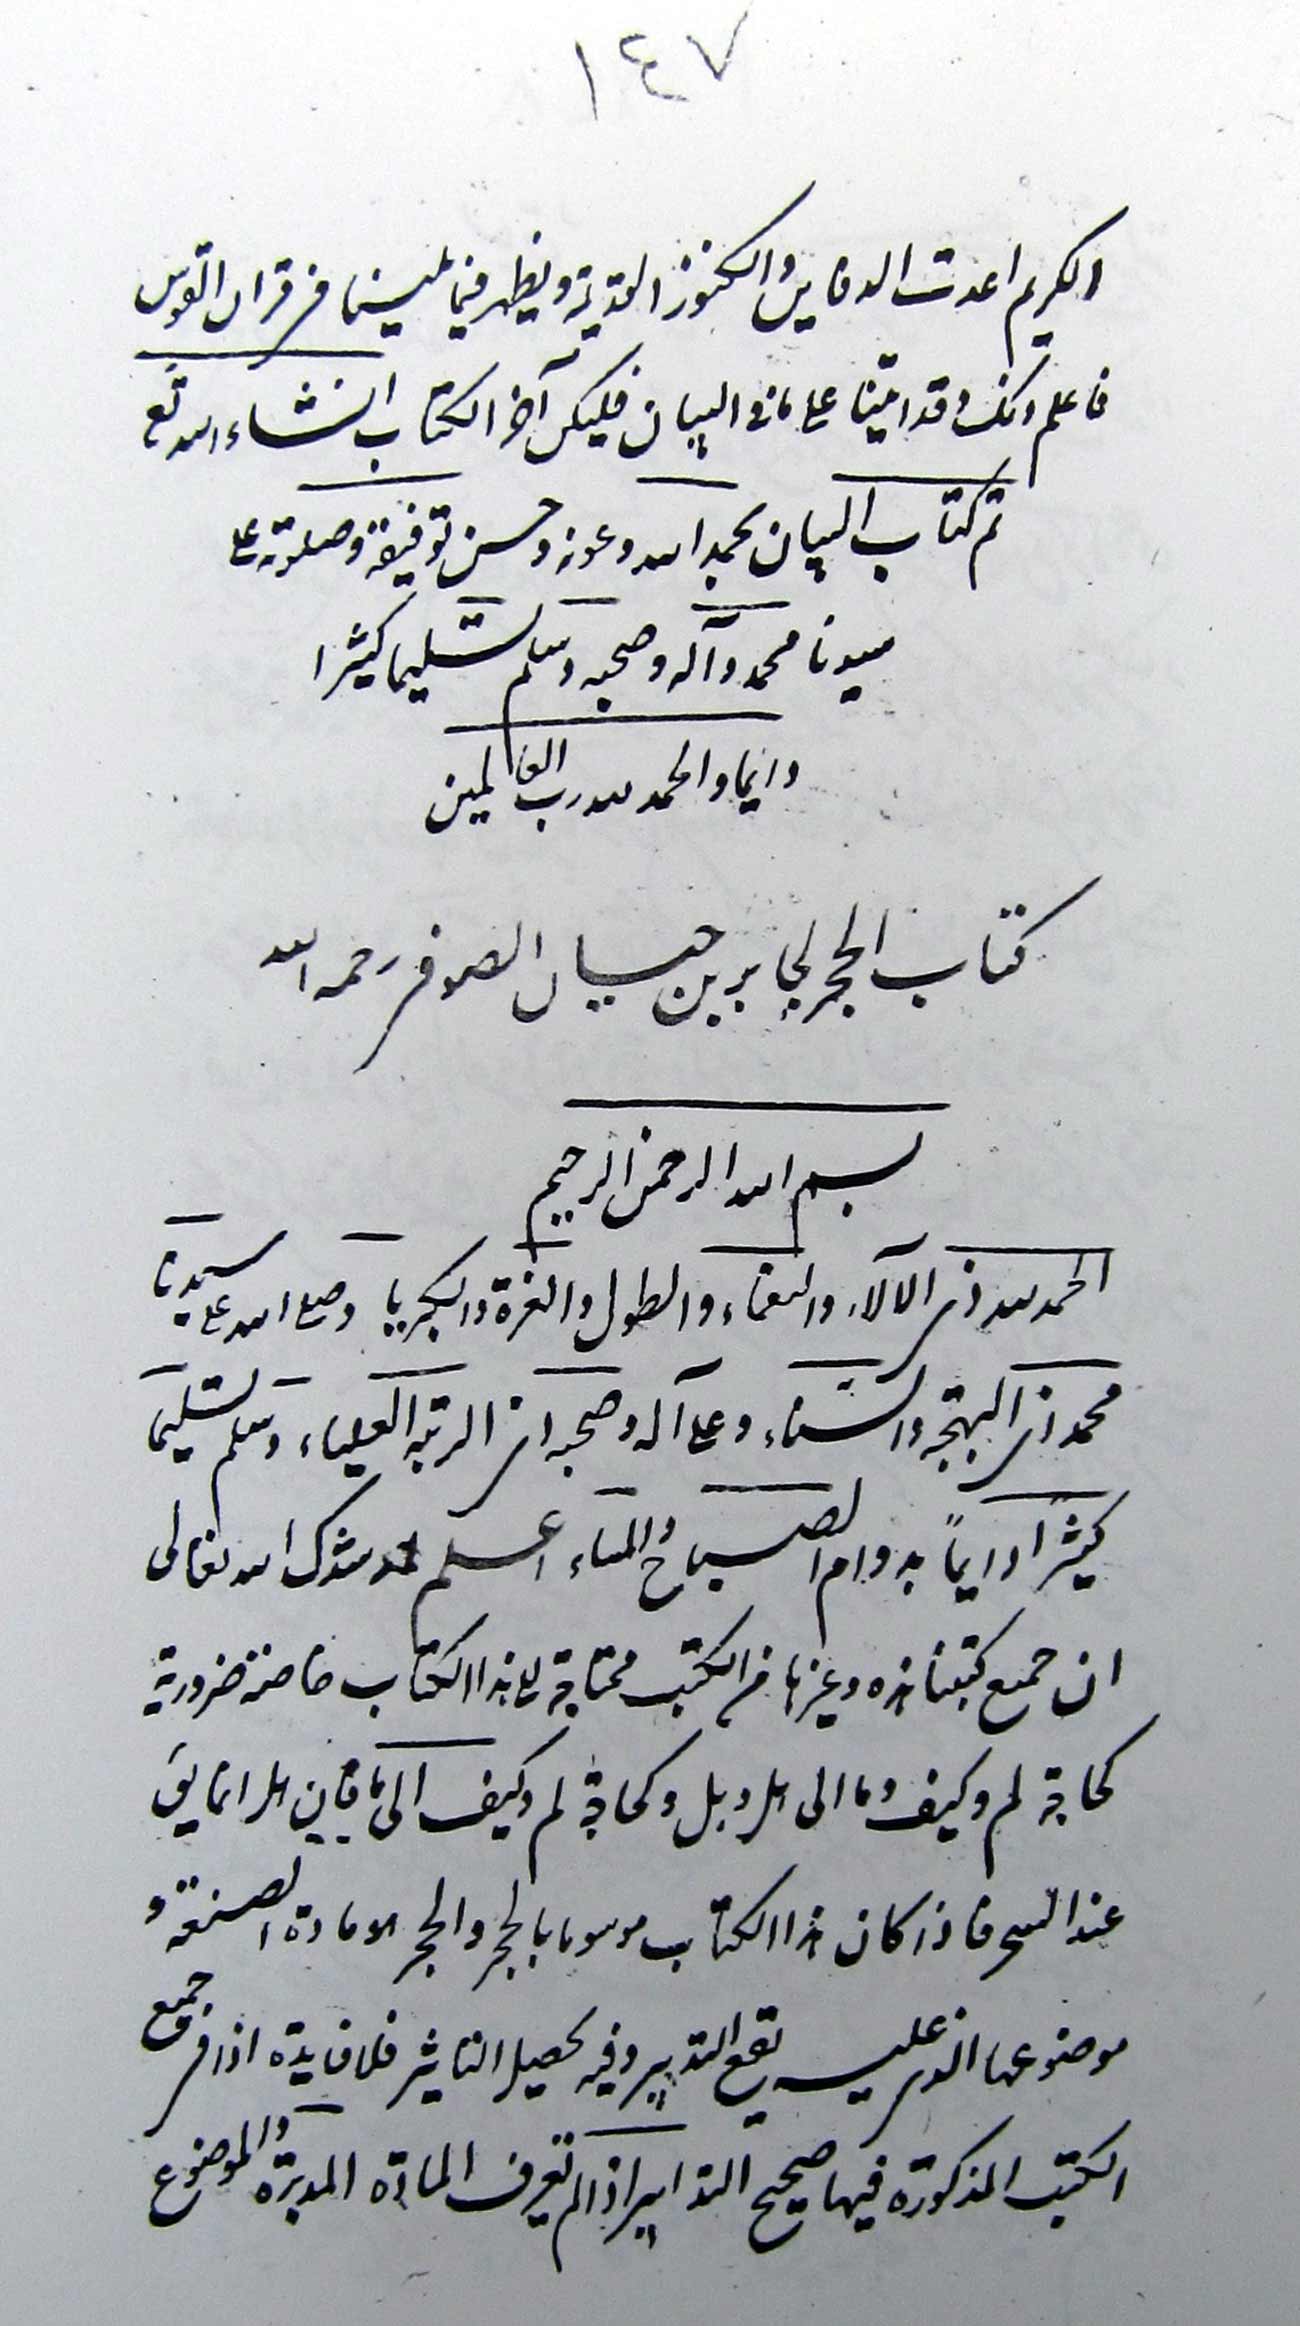 ١٤٧
الكريم اعدت الدفاين والكنوز القديمة ويظهر فيما بينهما قران القوس
فاعلم ذلك وقد اتينا على ما في البيان فليكن آخر الكتاب انشاء الله تع
تم كتاب البيان بحمد الله وعونه وحسن توفيقه وصلوته على
سيدنا محمد وآله وصحبه وسلم تسليما كثيرا
دائما والحمد لله رب العالمين
كتاب الحجر لجابر بن حيان الصوفي رحمه الله
بسم الله الرحمن الرحيم
الحمد لله ذى الآلاء والنعماء والطول والعزة والكبريا وصلى الله على سيدنا
محمد ذى البهجة والسناء وعلى آله وصحبه ذى الرتبة العلياء وسلم تسليما
كثيرا دايماً بدوام الصباح والمساء اعلم ارشدك الله تعالى
ان جميع كتبنا هذه وغيرها من الكتب محتاجة الى هذا الكتاب خاصة ضرورية
كحاجة لم وكيف وما الى هل وبل وكحاجة لم وكيف الى ما فاين هل انما يق
عند السحر فاذا كان هذا الكتاب موسوما بالحجر والحجر هو مادة الصنعة و
موضوعها الذى عليه يقع التدبير وفيه تحصيل التاثير فلا فايدة اذا فى جميع
الكتب المذكورة فيها صحيح التدابير اذا لم تعرف المادة المدبرة والموضوع